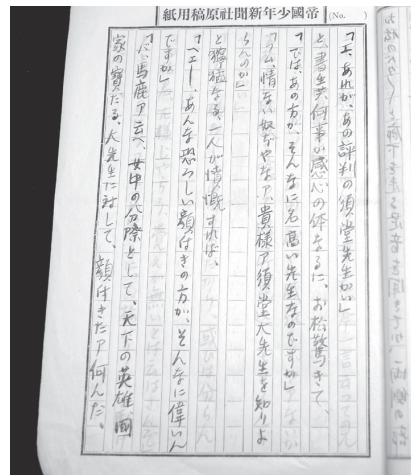 帝國少年新聞社原稿用紙
(No. )
「エ、あれが、あの評判の須堂先生かい」
と、書生共、何事か感心の体なるに、お松驚きて、
「では、あの方が、そんなに名高い先生なのですか」
「ウム、情ない奴ぢやなア、貴様ア須堂大先生を知りよ
らんのか」
と獰猛なる一人が憤慨すれば、
「ヘエー、あんな恐ろしい顔はきの方が、そんなに偉いん
ですか」
「バ、馬鹿ア云へ、女中の分際として、天下の英雄、國
家の寶たる、大先生に対して、顔はきたア何んだ、